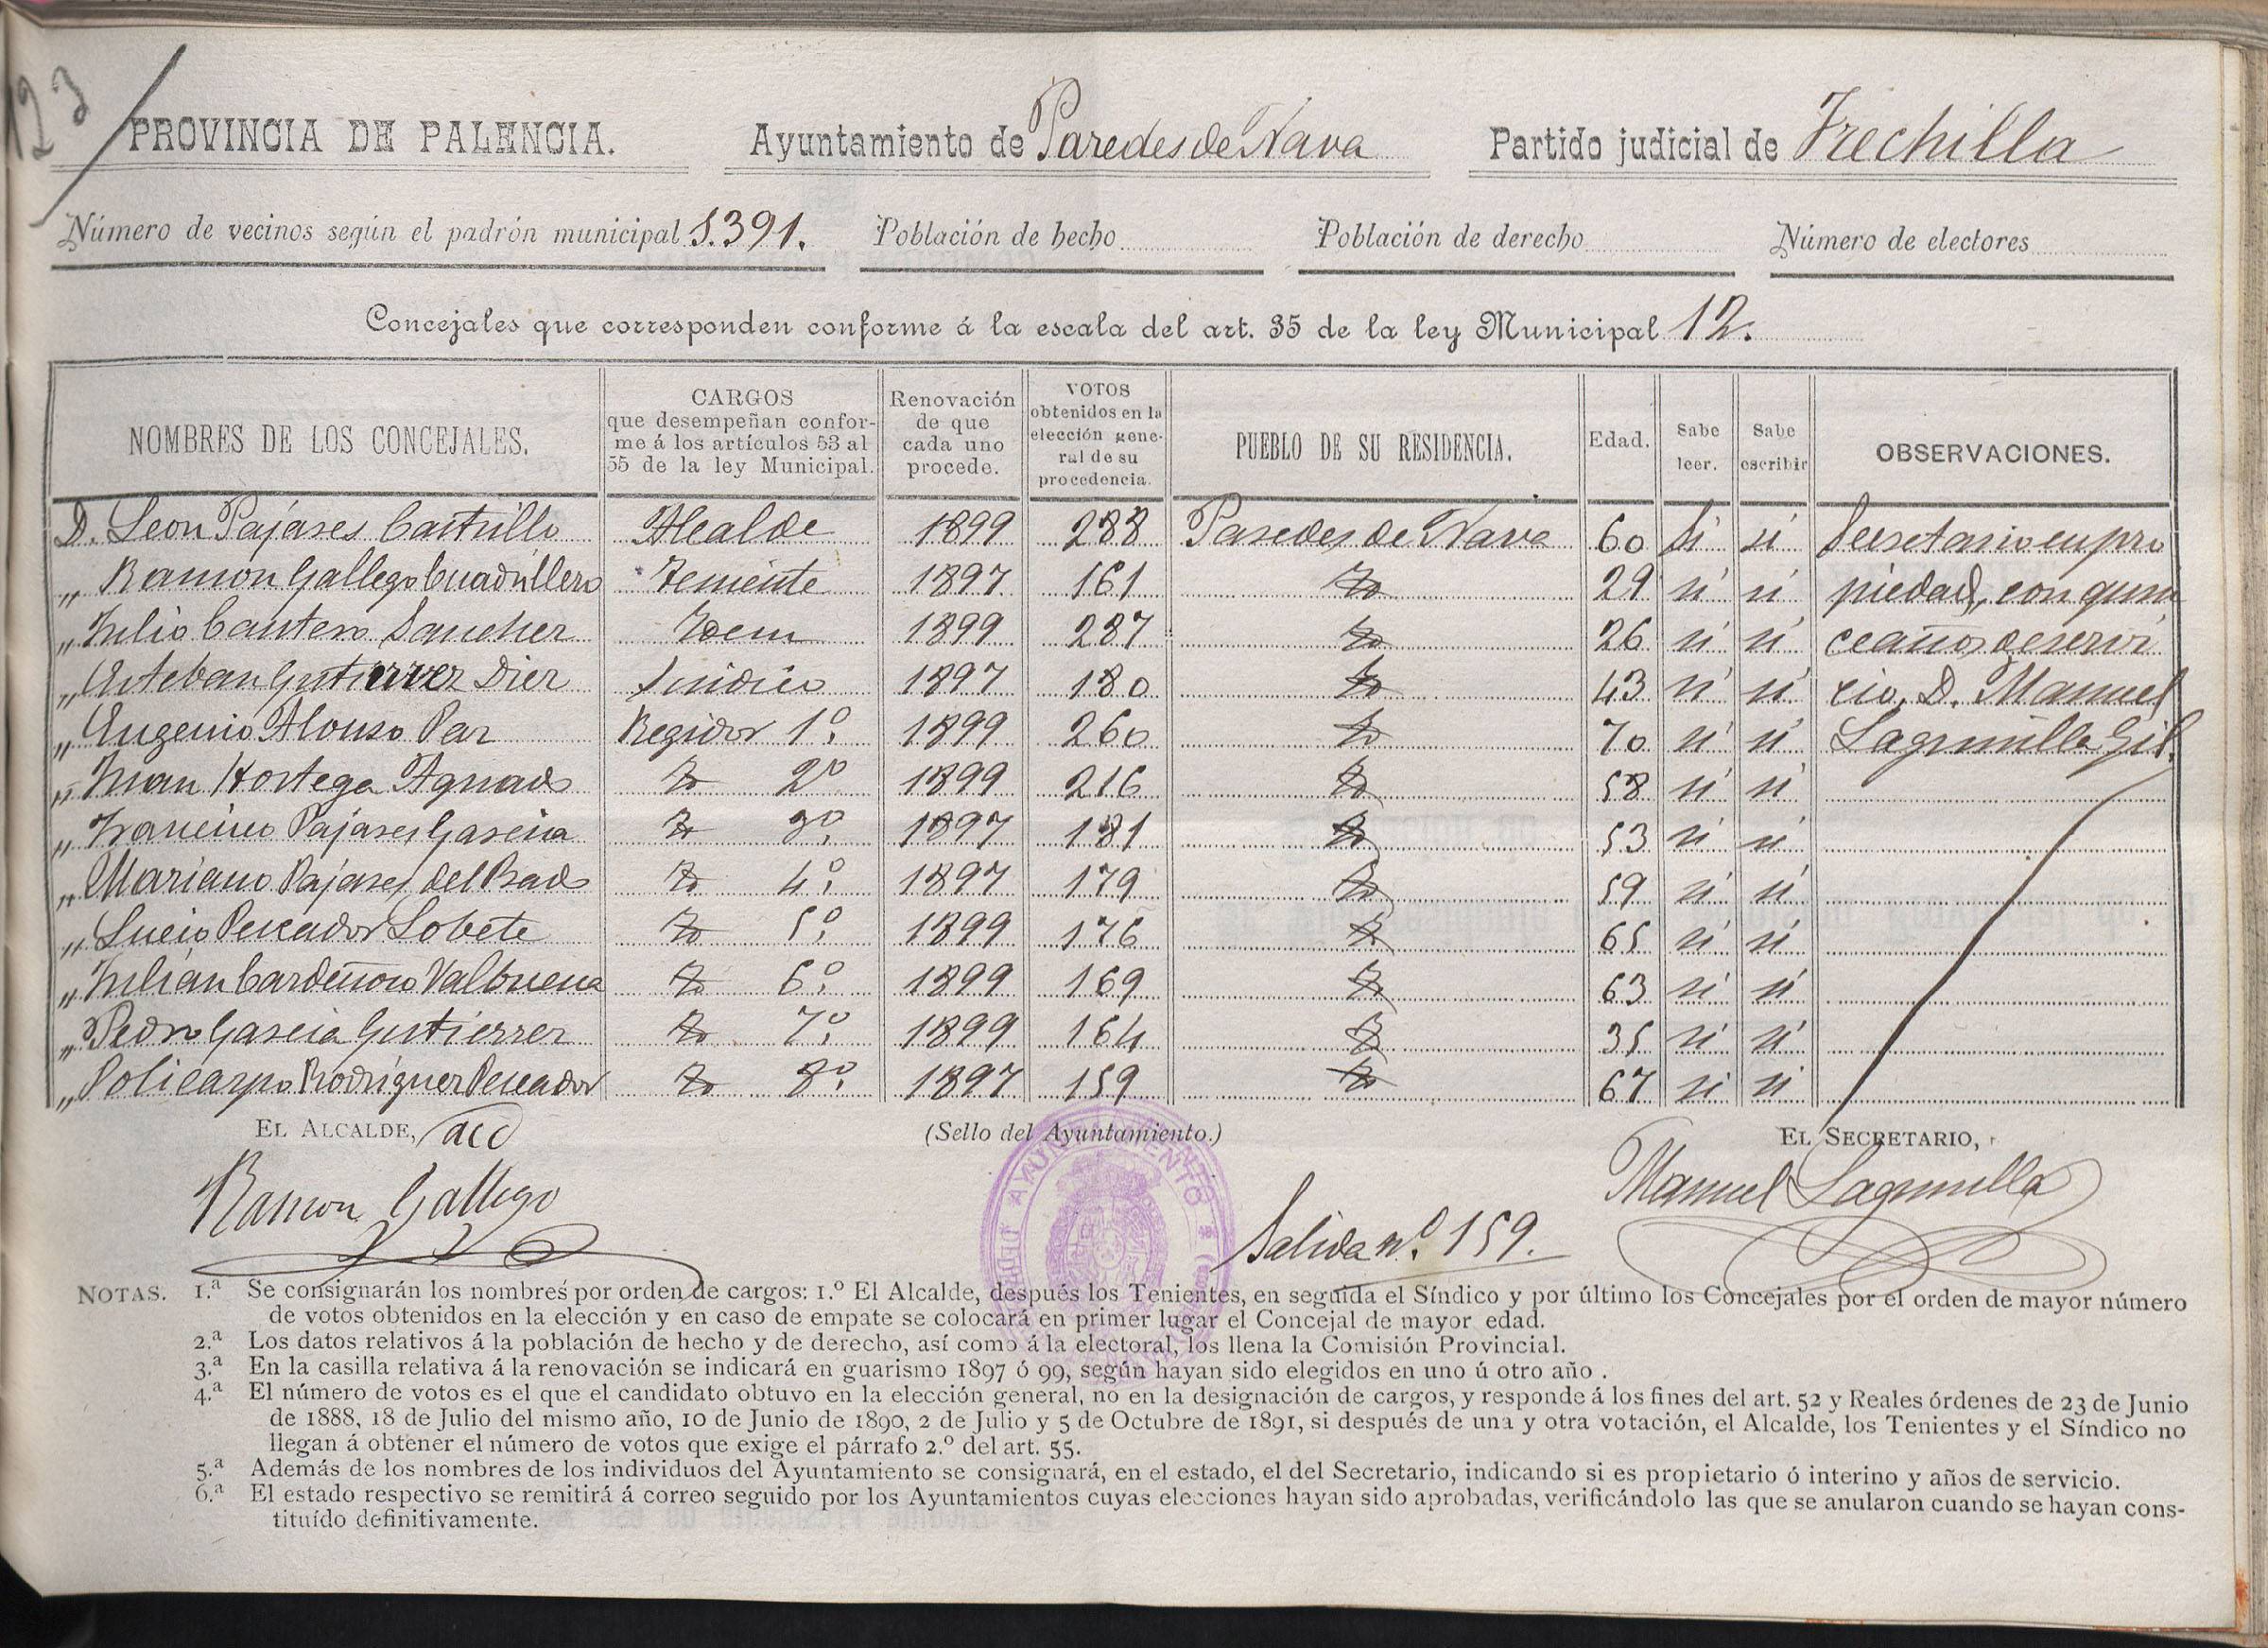 123
PROVINCIA DE PALENCIA. Ayuntamiento de Paredes de Nava Partido judicial de Frechilla
Número de vecinos según el padrón municipal 5.391. Población de hecho Población de derecho Número de electores
Concejales que corresponden conforme á la escala del art. 35 de la ley Municipal 12.
NOMBRES DE LOS CONCEJALES. CARGOS que desempeñan conforme á los artículos 53 al 55 de la ley Municipal. Renovación de que cada uno procede. VOTOS obtenidos en la elección general de su procedencia. PUEBLO DE SU RESIDENCIA. Edad. Sabe leer. Sabe escribir OBSERVACIONES.
D. Leon Pajares Castrillo Alcalde 1899 288 Paredes de Nava 60 Si si Secretario en pro
„ Ramon Gallego Cuadrillero Teniente 1897 161 Yd 29 si si piedad, con quin
„ Julio Cantero Sanchez Idem 1899 287 Yd 26 si si ce años de servi
„ Esteban Gutierrez Diez Sindico 1897 180 Yd 43 si si cio, D. Manuel
„ Eugenio Alonso Paz Regidor 1º 1899 260 Yd 70 si si Lagunilla Gil.
„ Juan Hortega Aguado Yd 2º 1899 216 Yd 58 si si
„ Francisco Pajares Garcia Yd 3º 1897 181 Yd 53 si si
„ Mariano Pajares del Prado Yd 4º 1897 179 Yd 59 si si
„ Lucio Pescador Lobete Yd 5º 1899 176 Yd 65 si si
„ Julian Cardeñoso Valbuena Yd 6º 1899 169 Yd 63 si si
„ Pedro Garcia Gutierrez Yd 7º 1899 164 Yd 35 si si
„ Policarpo Rodriguez Pescador Yd 8º 1897 159 Yd 67 si si
EL ALCALDE, acc (Sello del Ayuntamiento.) EL SECRETARIO,
Ramon Gallego AYUNTAMIENTO Salida nº 159. Manuel Lagunilla
NOTAS. 1.ª Se consignarán los nombres por orden de cargos: 1.º El Alcalde, después los Tenientes, en seguida el Síndico y por último los Concejales por el orden de mayor número
de votos obtenidos en la elección y en caso de empate se colocará en primer lugar el Concejal de mayor edad.
2.ª Los datos relativos á la población de hecho y de derecho, así como á la electoral, los llena la Comisión Provincial.
3.ª En la casilla relativa á la renovación se indicará en guarismo 1897 ó 99, según hayan sido elegidos en uno ú otro año .
4.ª El número de votos es el que el candidato obtuvo en la elección general, no en la designación de cargos, y responde á los fines del art. 52 y Reales órdenes de 23 de Junio
de 1888, 18 de Julio del mismo año, 10 de Junio de 1890, 2 de Julio y 5 de Octubre de 1891, si después de una y otra votación, el Alcalde, los Tenientes y el Síndico no
llegan á obtener el número de votos que exige el párrafo 2.º del art. 55.
5.ª Además de los nombres de los individuos del Ayuntamiento se consignará, en el estado, el del Secretario, indicando si es propietario ó interino y años de servicio.
6.ª El estado respectivo se remitirá á correo seguido por los Ayuntamientos cuyas elecciones hayan sido aprobadas, verificándolo las que se anularon cuando se hayan cons-
tituído definitivamente.